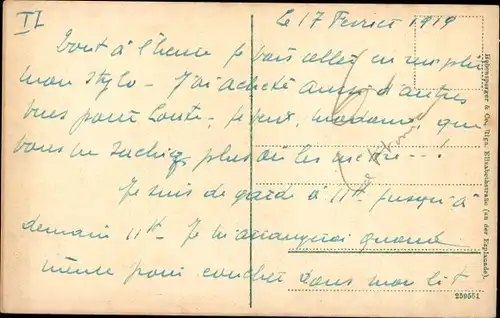 II
Le 17 Fevrier 1919
tout à l'heure je vais aller en
mon stylo - J'ai acheté aussi d'autres
vues pour toute - je veux, madame, que
vous ne sachiez plus où les mettre --!
Je suis de garde à 11h jusqu'à
demain 11h - Je m'arrangerai quand
même pour coucher dans mon lit
Hebensperger & Co., Riga, Elisabethstraße (an der Esplanade).
259551